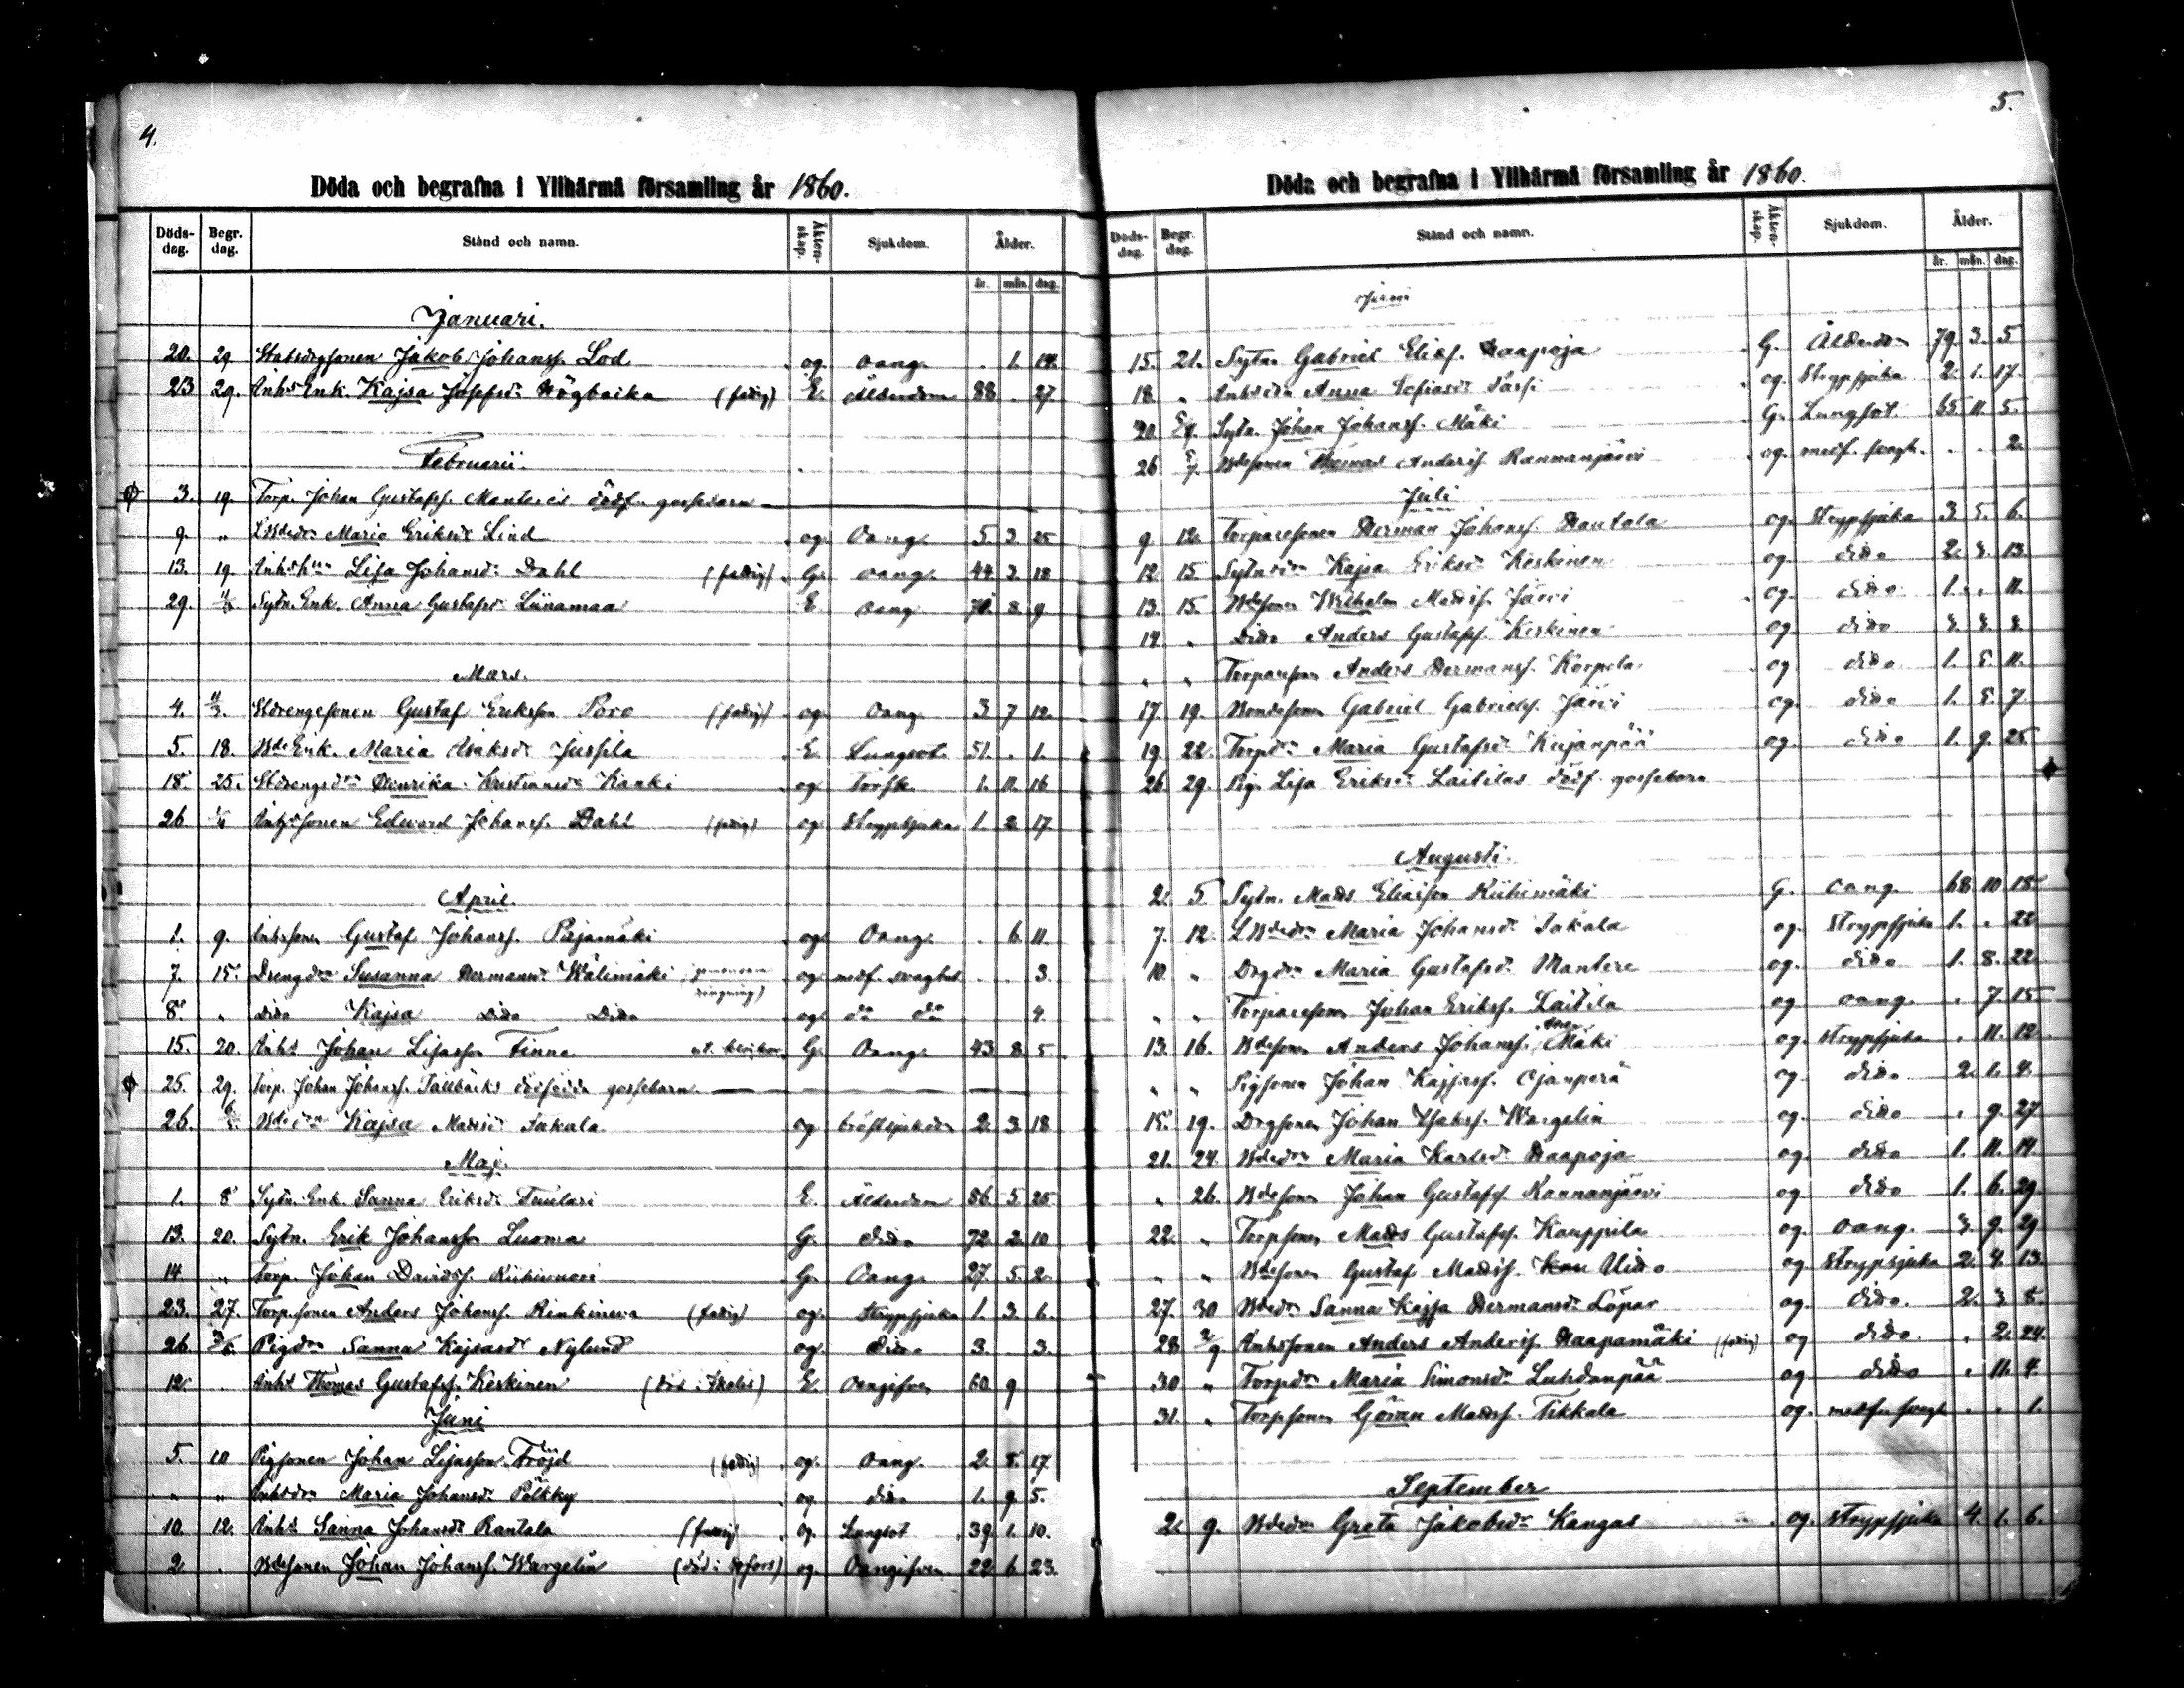 4.
Döda och begrafna i Ylihärmä församling år 1860.
Döds-dag. Begr. dag. Stånd och namn. Äkten-skap. Sjukdom. Ålder.
år. mån. dag.
Januari.
20. 29 Jakob Johanss. Lod og oang. . 1. 14.
23 29. Inhs Enk. Kajsa Josefsdr Högbacka (fattig) E. Ålderdom 88 . 27.
Februarii.
3. 19. Torp. Johan Gustafss. Manteres dödf. gossebarn
9. " Maria Eriksdr Lind og. Oang. 5. 3. 25
13. 19 Lisa Johansdr Dahl (fattig) G. oang. 44. 3. 18
29. 11/3 Sytn. Enk. Anna Gustafsdr Liinamaa E oang 70. 8. 9
Mars.
4. 11/3. Gustaf Eriksson Poro (fattig) og oang. 3. 7 12.
5. 18. Bde Enk. Maria Isaksdr Jussila E. Lungsot. 51. . 1.
18. 25. Henrika Kristiansdr Kanki og Torsk. 1. 11. 16
26. 1/4 Edward Johanss. Dahl (fattig) og Strypsjuka 1. 2. 17.
April.
1. 9. Gustaf Johanss. Pajamäki og Oang. . 6. 11.
7. 15. Drengdr Susanna Hermansdr Wälimäki ringning) og medf. svaghet . . 3.
8. " dido Kajsa dido dido og do do 4.
15. 20. Inhs Johan Lisasson Finne G. Oang. 43. 8. 5.
25. 29. Torp. Johan Johanss. Tallbacks dödfödda gossebarn
26. Kajsa Madsdr Takala og bröstsjukdom 2. 3. 18
Maj.
1. 8 Sytn. Enk. Sanna Eriksdr Tuulari E. Ålderdom 86. 5. 25.
13. 20. Sytn. Erik Johansson Luoma G. dido 72. 2. 10
14. " Torp. Johan Davidss. G. Oang. 27. 5. 2.
23. 27. Torp.sonen Anders Johanss. Rinkineva (fattig) og. Strypsjuka 1. 3. 6.
26 3/6. Pigdr Sanna Kajsasdr Nylund og dido 3. . 3.
12. . Inhs Thomas Gustafss. Keskinen E. Oangifven 60. 9
Juni
5. 10 Pigsonen Johan Lisasson Fröjd (fattig) og. oang. 2. 8. 17
" " Inhsdr Maria Johansdr Pölkky og dido 1. 9. 5.
10. 12. Inhs Sanna Johansdr Rantala (fattig) og. Lungsot 39. 1. 10.
2. . Bdesonen Johan Johanss. Wargelin (död i Hfors) og. Oangifven 22. 6. 23.
5.
Döda och begrafna i Ylihärmä församling år 1860.
Döds-dag. Begr. dag. Stånd och namn. Äkten-skap. Sjukdom. Ålder.
år. mån. dag.
Juni
15. 21. Sytn. Gabriel Eliess. Haapoja G. Ålderdom 79. 3. 5
18. " Anna og. Strypsjuka 2. 1. 17.
20. Sytn. Johan Johanss. Mäki G. Lungsot 65. 11. 5.
26 5/7. Bdesonen Thomas Anderss. Rannanjärvi og. medf. svagh. . . 2.
Juli
9. 12. Torparesonen Herman Johanss. Rantala og Strypsjuka 3. 5. 6.
12. 15. Kajsa Eriksdr Keskinen og dido 2. 8. 13.
13. 15. Bdesonen Wilhelm Madss. Järvi og. dido 1. . 11.
14. " Dido Anders Gustafss. Keskinen og dido 3. 3. 3.
" " Torparesonen Anders Hermanss. Korpela og dido 1. 5. 11.
17. 19. Bondesonen Gabriel Gabrielss. Järvi og dido 1. 8. 7
19 22. Torpdr Maria Gustafsdr Kujanpää og. dido 1. 9. 25
26. 29. Pig. Lisa Eriksdr Laitilas dödf. gossebarn
Augusti.
2. 5. Sytn. Mads Eliasson Riihimäki G. oang. 68 10 18
7. 12. Maria Johansdr Takala og Strypsjuka 1. . 22
10. " Drgdr Maria Gustafsdr Mantere og. dido 1. 8. 22
" " Torparesonen Johan Erikss. Laitila og oang. . 7. 15
13. 16. Bdesonen Anders Johanss. Mäki og Strypsjuka . 11. 12.
" " Pigsonen Johan Kajsass. Ojanperä og dido 2. 1. 4.
15. 19. Drgsonen Johan Isakss. Wargelin og. dido . 9. 27
21. 24. Bdedr Maria Karlsdr Haapoja og. dido 1. 11. 14.
" 26. Bdesonen Johan Gustafss. Rannanjärvi og. dido 1. 6. 29
22. " Torpsonen Mads Gustafss. Kauppila og. oang. 3. 9. 29
" " Bdesonen Gustaf Madss. og Strypsjuka 2. 4. 13.
27. 30 Bdedr Sanna Kajsa Hermansdr Löpar og. dido. 2. 3 8.
28. 2/9 Inhssonen Anders Anderss. Haapamäki (fattig) og dido. . 2. 24.
30 " Torpdr Maria Simonsdr Luhdanpää og dido . 11. 4.
31. " Torpsonen Göran Madss. Tikkala og. medf. svagh . . 1.
September
2. 9. Bdedr Greta Jakobsdr Kangas og. Strypsjuka 4. 1. 6.